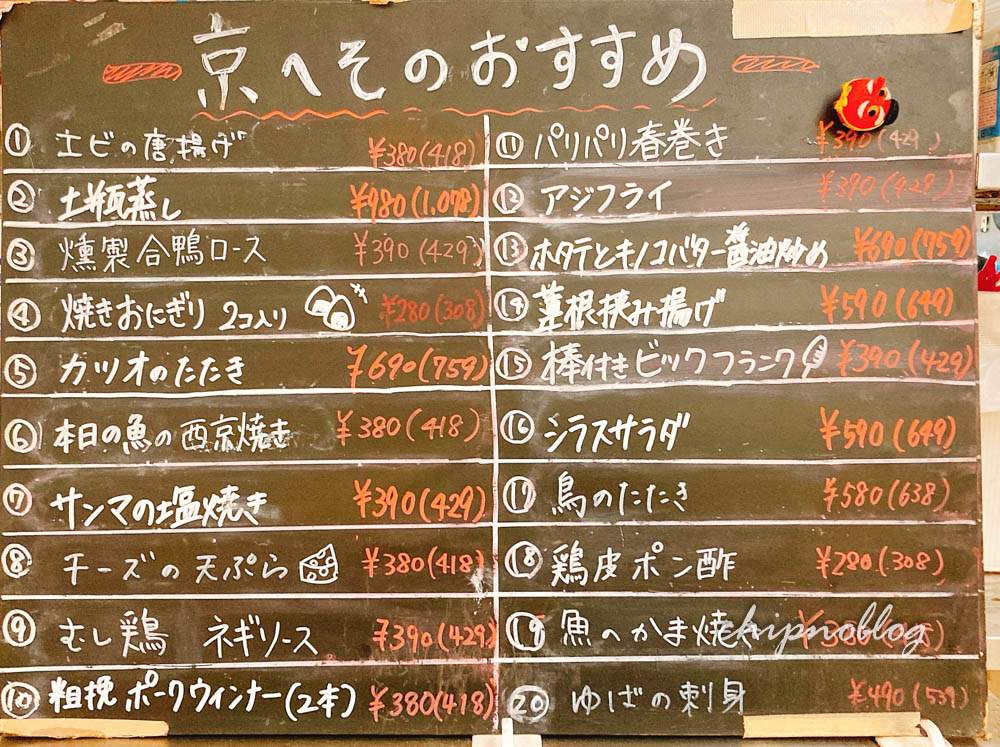 京へそのおすすめ
① エビの唐揚げ ¥380(418)
② 土瓶蒸し ¥980(1.078)
③ 燻製合鴨ロース ¥390(429)
④ 焼きおにぎり 2コ入り ¥280(308)
⑤ カツオのたたき ¥690(759)
⑥ 本日の魚の西京焼き ¥380(418)
⑦ サンマの塩焼き ¥390(429)
⑧ チーズの天ぷら ¥380(418)
⑨ むし鶏 ネギソース ¥390(429)
⑩ 粗挽ポークウィンナー(2本) ¥380(418)
⑪ パリパリ春巻き ¥390(429)
⑫ アジフライ ¥390(429)
⑬ ホタテとキノコバター醤油炒め ¥690(759)
⑭ 蓮根挟み揚げ ¥590(649)
⑮ 棒付きビックフランク ¥390(429)
⑯ シラスサラダ ¥590(649)
⑰ 鳥のたたき ¥580(638)
⑱ 鶏皮ポン酢 ¥280(308)
⑲ 魚のかま焼き
chipnoblog
⑳ ゆばの刺身 ¥490(539)